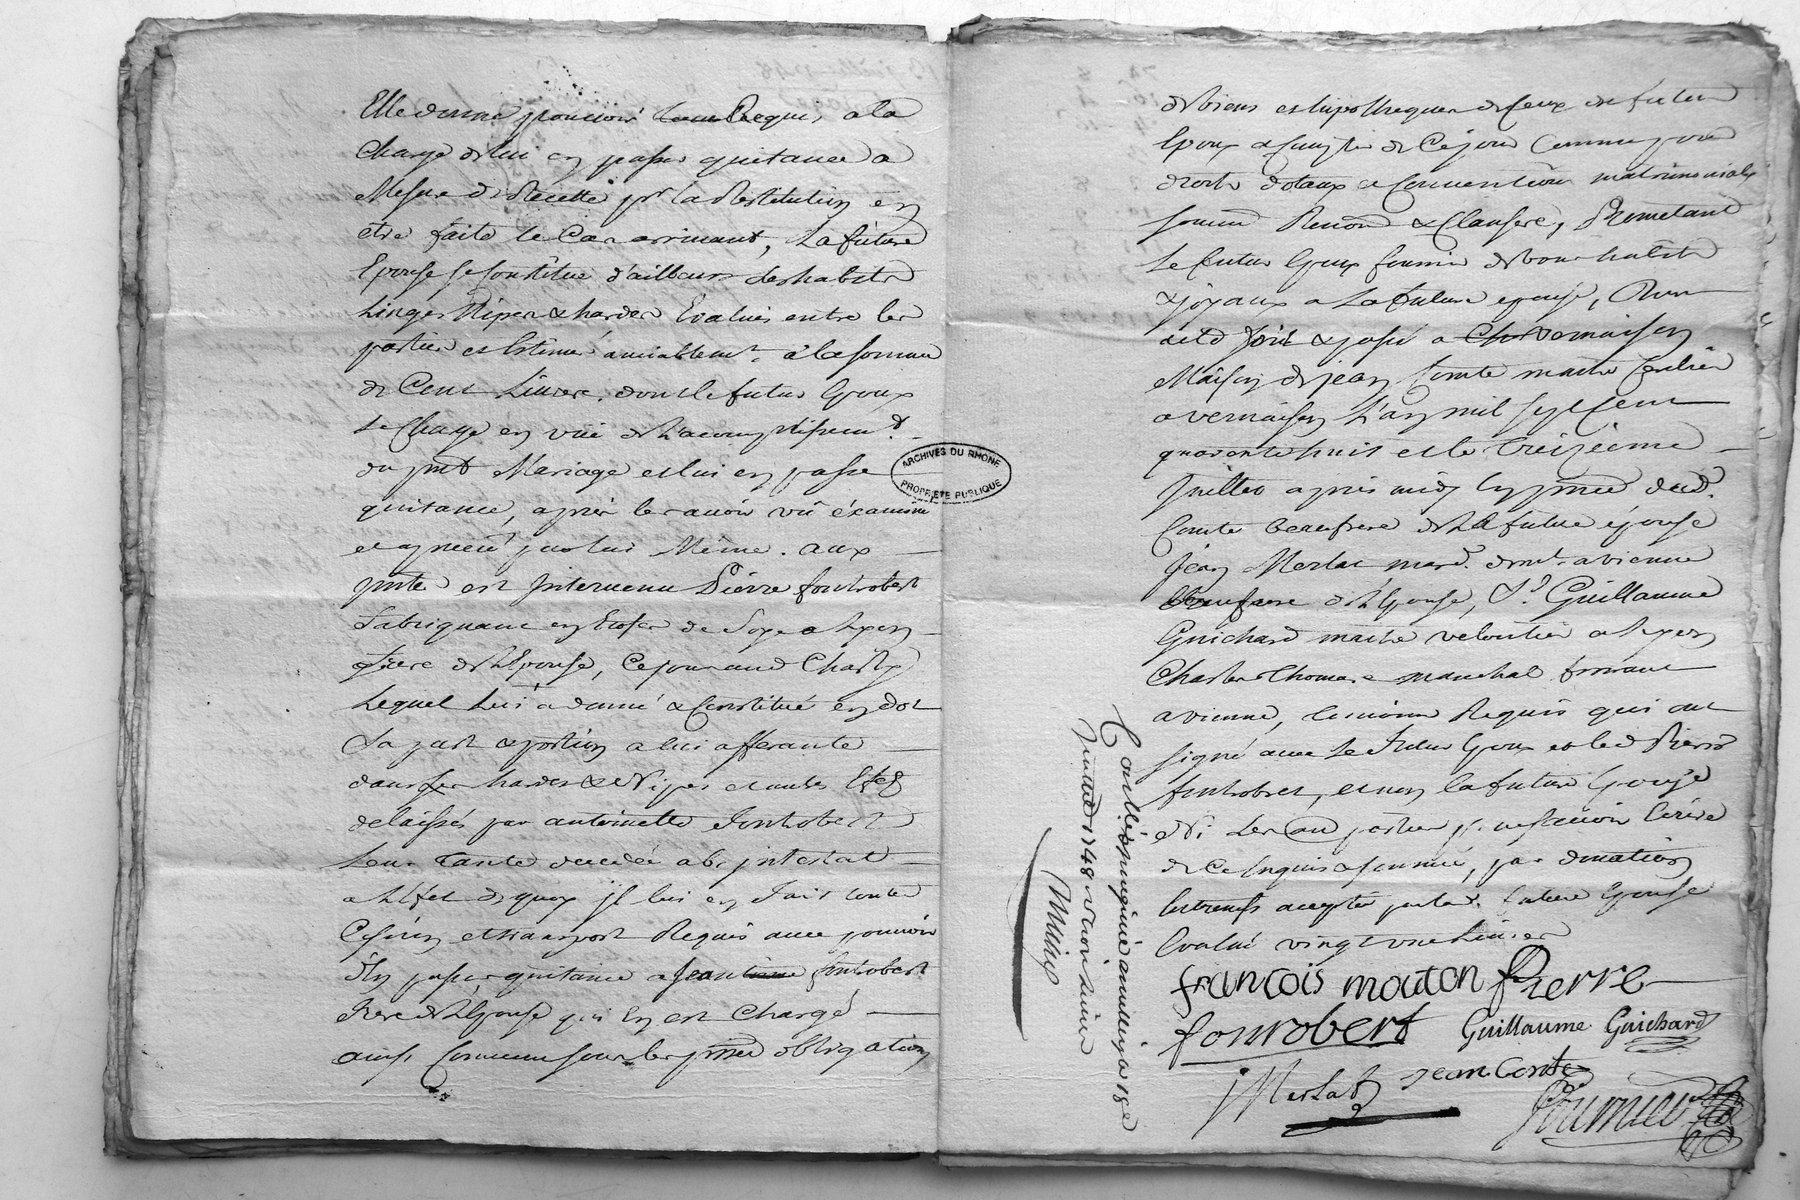 Elle donne pouvoir Requis a la
charge de lui en passer quitance a
Mesure de Recette pr la Restitution en
etre faite le Cas arrivant, La future
Epouse se Constitue d'ailleurs des habits
Linges Nipes & hardes Evalués entre les
parties et Estimés amiablemt. a la somme
de Cent Livres. dont le futur Epoux
se Charge en vüe de L'accomplissemt.
du pnt Mariage et lui en passe
quitance, aprés les avoir vû éxaminé
et par lui Même. aux
pntes est Intervenu Pierre fontrobert
fabriquant en Etofes de Soye a Lyon
frere de L'Epouse,
Lequel Lui a donné & Constitué en dot
Sa part & portion a lui afferante
dans les hardes & Nipes et autres
delaissés par antoinette fontrobert
Leur Tante decedée ab jntestat
a L'efet de quoy jl lui en fait toute
Cession et transport Requis avec pouvoir
d'en passer quitance a Jean fontrobert
frere de L'Epouse qui En est Chargé
ainsi Convenu sous les pnes obligations
de biens et hipothequer de Ceux du futur
Epoux a Compter de Ce jour Comme pour
droits dotaux et Conventions matrimoniales
soumis Renon & Clauses, Prometant
Le futur Epoux fournir de bons habits
& joyaux a La future epouse,
fait & passé a vernaison
Maison de jean Comte maitre
a vernaison L'an mil sept Cent
quarente huit et le treizieme
Juillet aprés midy En pnce dud.
Comte beaufrere de La future épouse
jean Merlat mard. demt. a vienne
beaufrere de L'Epouse, Sr. Guillaume
Guichard maitre veloutier a Lyon
Charles Thomas marechal
a vienne, temoins Requis qui ont
signé avec Le futur Epoux et led Pierre
fontrobert, et non la future Epouse
ni Les au parties pr ne sçavoir Ecrire
de Ce Enquis & sommé, par donation
acceptée par la future Epouse
Evalué vingt une Livres
françois mouton Pierre
fonrobert Guillaume Guichard
J Merlat jean Conte
Fournier
Juillet 1748
ARCHIVES DU RHONE
PROPRIETE PUBLIQUE